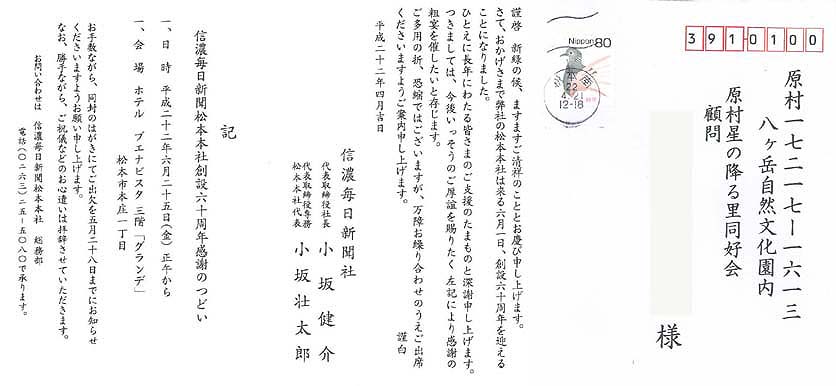 3910100
原村一七二一七ー一六一三
八ヶ岳自然文化園内
原村星の降る里同好会
顧問
様
Nippon 80
22
4.21
12-16
謹啓　新緑の候、ますますご清祥のこととお慶び申し上げます。
さて、おかげさまで弊社の松本本社は来る六月一日、創設六十周年を迎える
ことになりました。
ひとえに長年にわたる皆さまのご支援のたまものと深謝申し上げます。
つきましては、今後いっそうのご厚誼を賜りたく左記により感謝の
粗宴を催したいと存じます。
ご多用の折、恐縮ではございますが、万障お繰り合わせのうえご出席
くださいますようご案内申し上げます。
謹白
平成二十二年四月吉日
信濃毎日新聞社
代表取締役社長　小坂健介
代表取締役専務
松本本社代表　小坂壮太郎
記
信濃毎日新聞松本本社創設六十周年感謝のつどい
一、日　時　平成二十二年六月二十五日(金)　正午から
一、会　場　ホテル　ブエナビスタ　三階「グランデ」
松本市本庄一丁目
お手数ながら、同封のはがきにてご出欠を五月二十八日までにお知らせ
くださいますようお願い申し上げます。
なお、勝手ながら、ご祝儀などのお心遣いは拝辞させていただきます。
お問い合わせは　信濃毎日新聞松本本社　総務部
電話(〇二六三)二五ー五〇八〇で承ります。